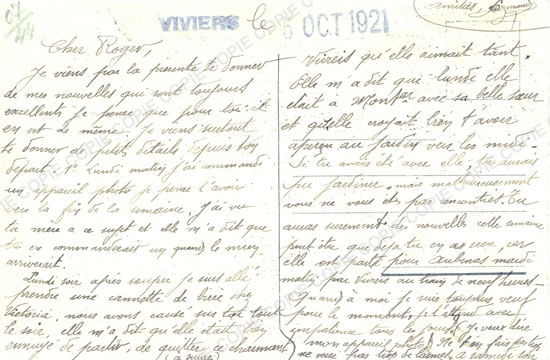 VIVIERS le 6 OCT 1921
amitiés,
Cher Roger,
Je viens par la présente te donner
de mes nouvelles qui sont toujours
excellents je pense que pour toi il
en est de même. Je viens surtout
te donner de petits détails depuis ton
départ. Lundi matin j'ai commandé
un appareil photo je pense l'avoir
vers la fin de la semaine. J'ai vu
ta mère a ce sujet et elle m'a dit que
tu en commanderait un quand le mien
arriverait.
Lundi soir après souper je suis allé
prendre une cannette de bière chez
Victoria, nous avons causé sur toi tout
le soir, elle m'a dit qu'elle était bien
ennuyé de partir, de quitter ce charmant
(a suivre)
Viviers qu'elle aimait tant.
Elle m'a dit que lundi elle
était a avec sa belle sœur
et giselle croyait bien t'avoir
aperçu au jardin vers les midi.
Si tu avais été avec elle, tu aurais
pu jardiner, mais malheureusement
vous ne vous êtes pas rencontrés. Tu
auras surement des nouvelles cette semaine
peut être que déjà tu en as eu, car
elle est partit pour Aubenas mardi
matin par Viviers au train de neuf heures.
Quand a moi je suis toujours veuf
pour le moment, je
impatience tous les jours. Je veux dire
mon appareil photo. Ne t'en fais pas trop
ne verse pas trop de larmes, a samedi soir